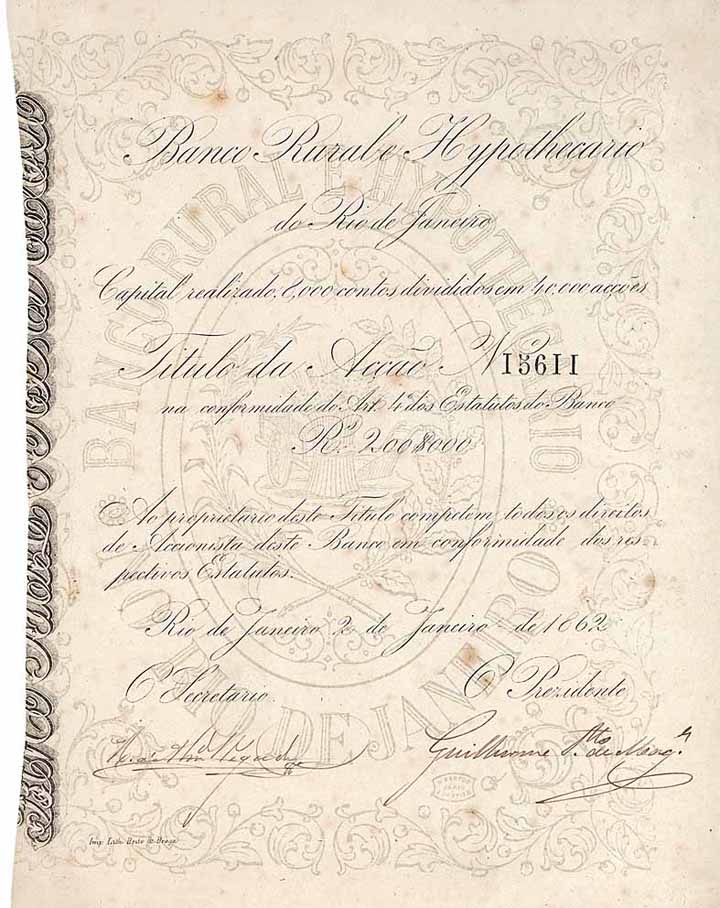 Banco Rural e Hypothecario
do Rio de Janeiro
Capital realizado, 8,000 contos divididos em 40,000 acções
Titulo da Acção N 15611
na conformidade do Art. 4º dos Estatutos do Banco
Rs. 200$000
Ao proprietario deste Titulo competem todos os direitos
de Accionista deste Banco em conformidade dos res
pectivos Estatutos.
Rio de Janeiro 2 de Janeiro de 1862
O Secretario
O Prezidente
Guilherme
Imp. Lith. Brito & Braga
BANCO RURAL E HYPOTHECARIO
DO RIO DE JANEIRO